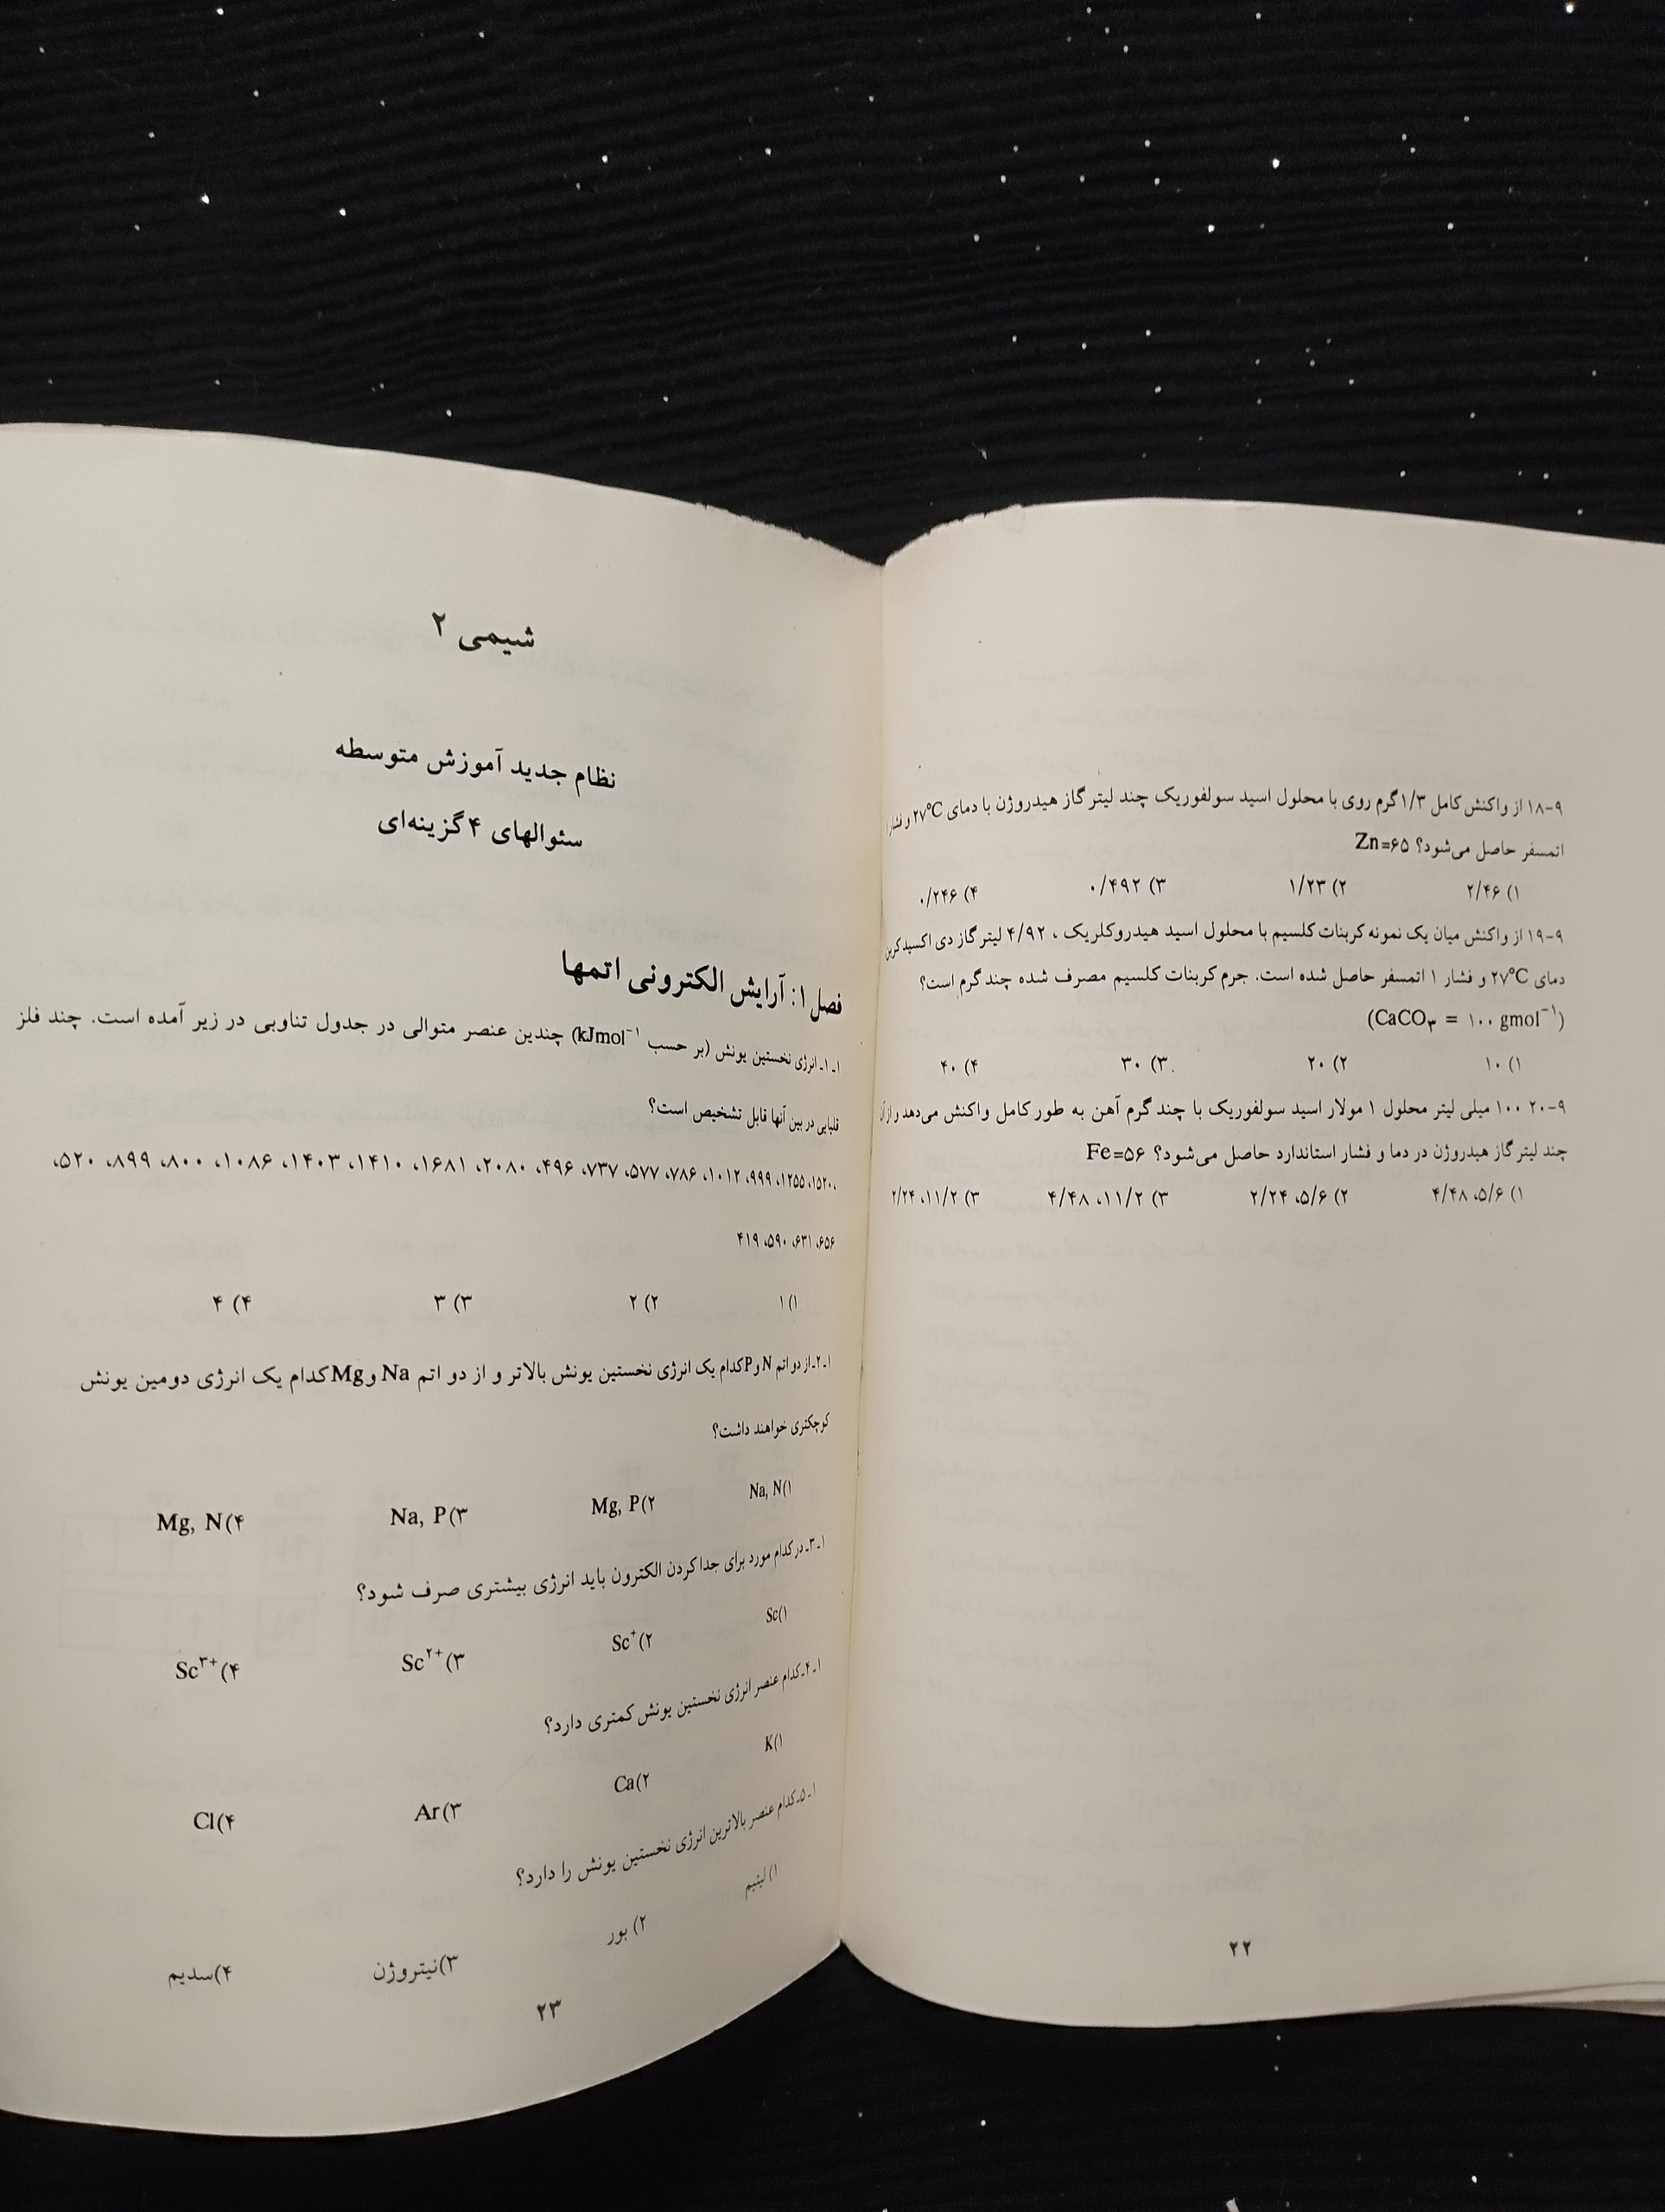 ۹-۱۸ از واکنش کامل ۱/۳ گرم روی با محلول اسید سولفوریک چند لیتر گاز هیدروژن با دمای ۲۷°C و فشار ۱
اتمسفر حاصل می‌شود؟ Zn=۶۵
۱) ۲/۴۶ ۲) ۱/۲۳ ۳) ۰/۴۹۲ ۴) ۰/۲۴۶
۹-۱۹ از واکنش میان یک نمونه کربنات کلسیم با محلول اسید هیدروکلریک ، ۴/۹۲ لیتر گاز دی اکسید کربن
دمای ۲۷°C و فشار ۱ اتمسفر حاصل شده است. جرم کربنات کلسیم مصرف شده چند گرم است؟
(CaCO₃ = ۱۰۰ gmol⁻¹)
۱) ۱۰ ۲) ۲۰ ۳) ۳۰ ۴) ۴۰
۹-۲۰ ۱۰۰ میلی لیتر محلول ۱ مولار اسید سولفوریک با چند گرم آهن به طور کامل واکنش می‌دهد و از آن
چند لیتر گاز هیدروژن در دما و فشار استاندارد حاصل می‌شود؟ Fe=۵۶
۱) ۵/۶، ۴/۴۸ ۲) ۵/۶، ۲/۲۴ ۳) ۱۱/۲، ۴/۴۸ ۳) ۱۱/۲، ۲/۲۴
۲۲
شیمی ۲
نظام جدید آموزش متوسطه
سئوالهای ۴ گزینه‌ای
فصل ۱: آرایش الکترونی اتمها
۱-۱- انرژی نخستین یونش (بر حسب kJmol⁻¹) چندین عنصر متوالی در جدول تناوبی در زیر آمده است. چند فلز
قلیایی در بین آنها قابل تشخیص است؟
۵۲۰، ۸۹۹، ۸۰۰، ۱۰۸۶، ۱۴۰۳، ۱۴۱۰، ۱۶۸۱، ۲۰۸۰، ۴۹۶، ۷۳۷، ۵۷۷، ۷۸۶، ۱۰۱۲، ۹۹۹، ۱۲۵۵، ۱۵۲۰،
۴۱۹، ۵۹۰، ۶۳۱، ۶۵۶
۱) ۱ ۲) ۲ ۳) ۳ ۴) ۴
۱-۲- از دو اتم N و P کدام یک انرژی نخستین یونش بالاتر و از دو اتم Na و Mg کدام یک انرژی دومین یونش
کوچکتری خواهند داشت؟
۱) Na, N ۲) Mg, P ۳) Na, P ۴) Mg, N
۱-۳- در کدام مورد برای جدا کردن الکترون باید انرژی بیشتری صرف شود؟
۱) Sc ۲) Sc⁺ ۳) Sc²⁺ ۴) Sc³⁺
۱-۴- کدام عنصر انرژی نخستین یونش کمتری دارد؟
۱) K ۲) Ca ۳) Ar ۴) Cl
۱-۵- کدام عنصر بالاترین انرژی نخستین یونش را دارد؟
۱) لیتیم ۲) بور ۳) نیتروژن ۴) سدیم
۲۳